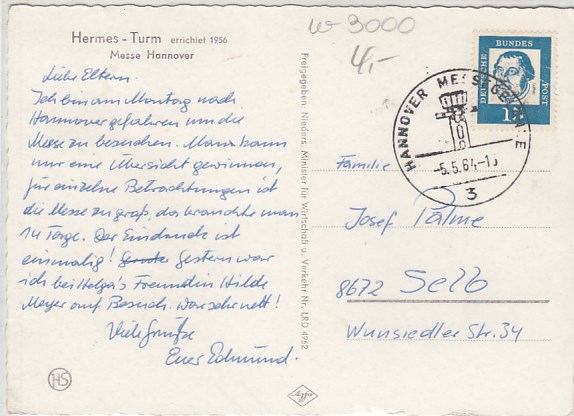 Hermes - Turm errichtet 1956
Messe Hannover
Liebe Eltern.
Ich bin am Montag nach
Hannover gefahren um die
Messe zu besuchen. Man kann
nur eine Übersicht gewinnen,
für einzelne Betrachtungen ist
die Messe zu groß, da brauchte man
14 Tage. Der Eindruck ist
einmalig! Gestern war
ich bei Helga's Freundin Hilde
Meyer auf Besuch. War sehr nett!
Viele Grüße
Euer Edmund.
HS
Freigegeben: Nieders. Minister für Wirtschaft u. Verkehr Nr. LRD 4962
Agfa
w 3000
4,-
DEUTSCHE BUNDES POST
15
HANNOVER MESSEGELÄNDE
-5.5.64-1
3
Familie
Josef Palme
8672 Selb
Wunsiedler Str. 34